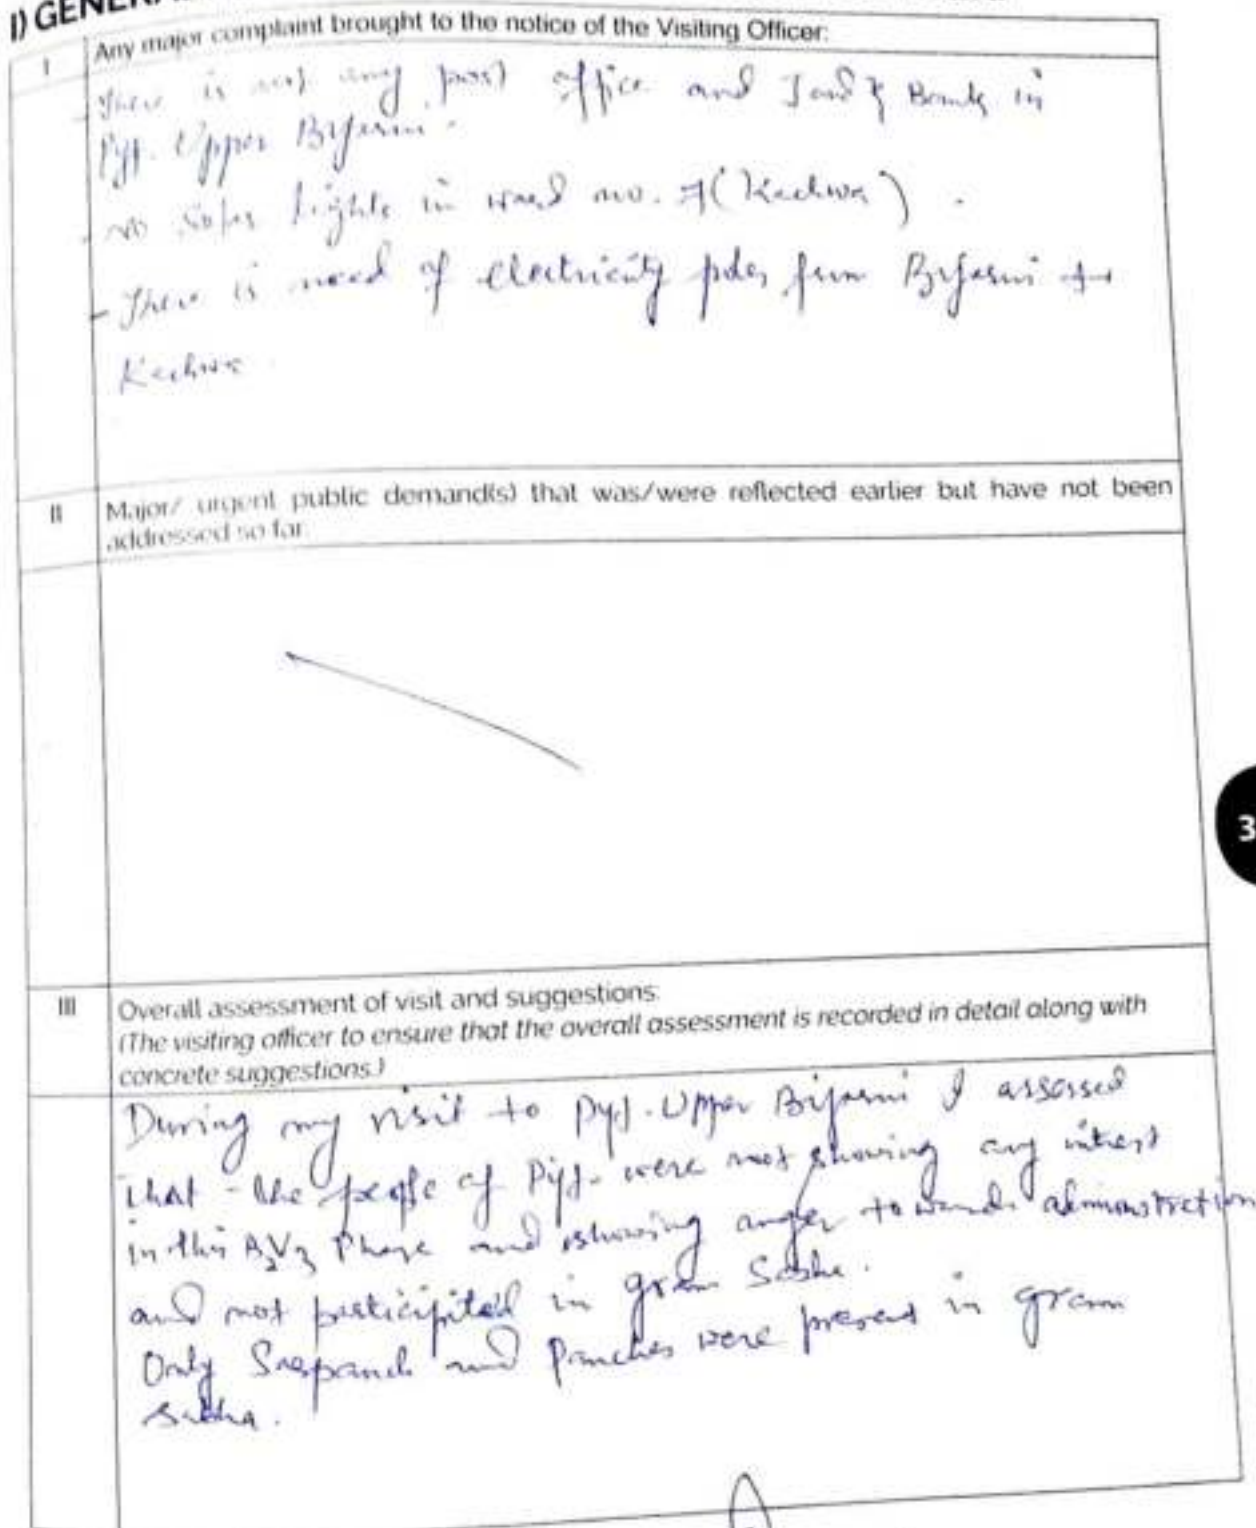 I) GENERA
I Any major complaint brought to the notice of the Visiting Officer:
- There is not any post office and J and K Bank in
Pyt. Upper Bijarni.
- No Solar lights in ward no. 7 (Kachwa).
- There is need of electricity poles from Bijarni to
Kachwa.
II Major/ urgent public demand(s) that was/were reflected earlier but have not been
addressed so far.
3
III Overall assessment of visit and suggestions:
(The visiting officer to ensure that the overall assessment is recorded in detail along with
concrete suggestions.)
During my visit to Pyt. Upper Bijarni I assessed
that the people of Pyt. were not showing any intrest
in this B2V3 Phase and showing anger towards adminstration
and not participited in gram Sabha.
Only Sarpanch and Panches were present in gram
sabha.